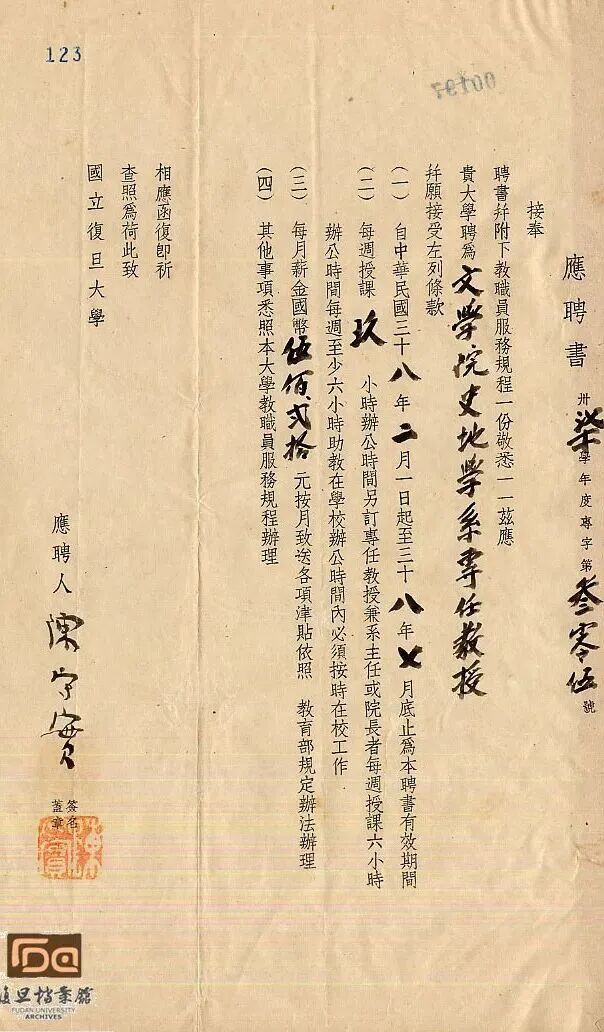 123
應聘書
卅柒學年度專字第叁零伍號
接奉
聘書幷附下教職員服務規程一份敬悉一一茲應
貴大學聘爲文學院史地學系專任教授
幷願接受左列條款
(一) 自中華民國三十八年二月一日起至三十八年七月底止爲本聘書有效期間
(二) 每週授課玖小時辦公時間另訂專任教授兼系主任或院長者每週授課六小時
辦公時間每週至少六小時助教在學校辦公時間內必須按時在校工作
(三) 每月薪金國幣伍佰弍拾元按月致送各項津貼依照 教育部規定辦法辦理
(四) 其他事項悉照本大學教職員服務規程辦理
相應函復卽祈
查照爲荷此致
國立復旦大學
應聘人 陳守實
簽名
蓋章
復旦檔案館
FUDAN UNIVERSITY
ARCHIVES